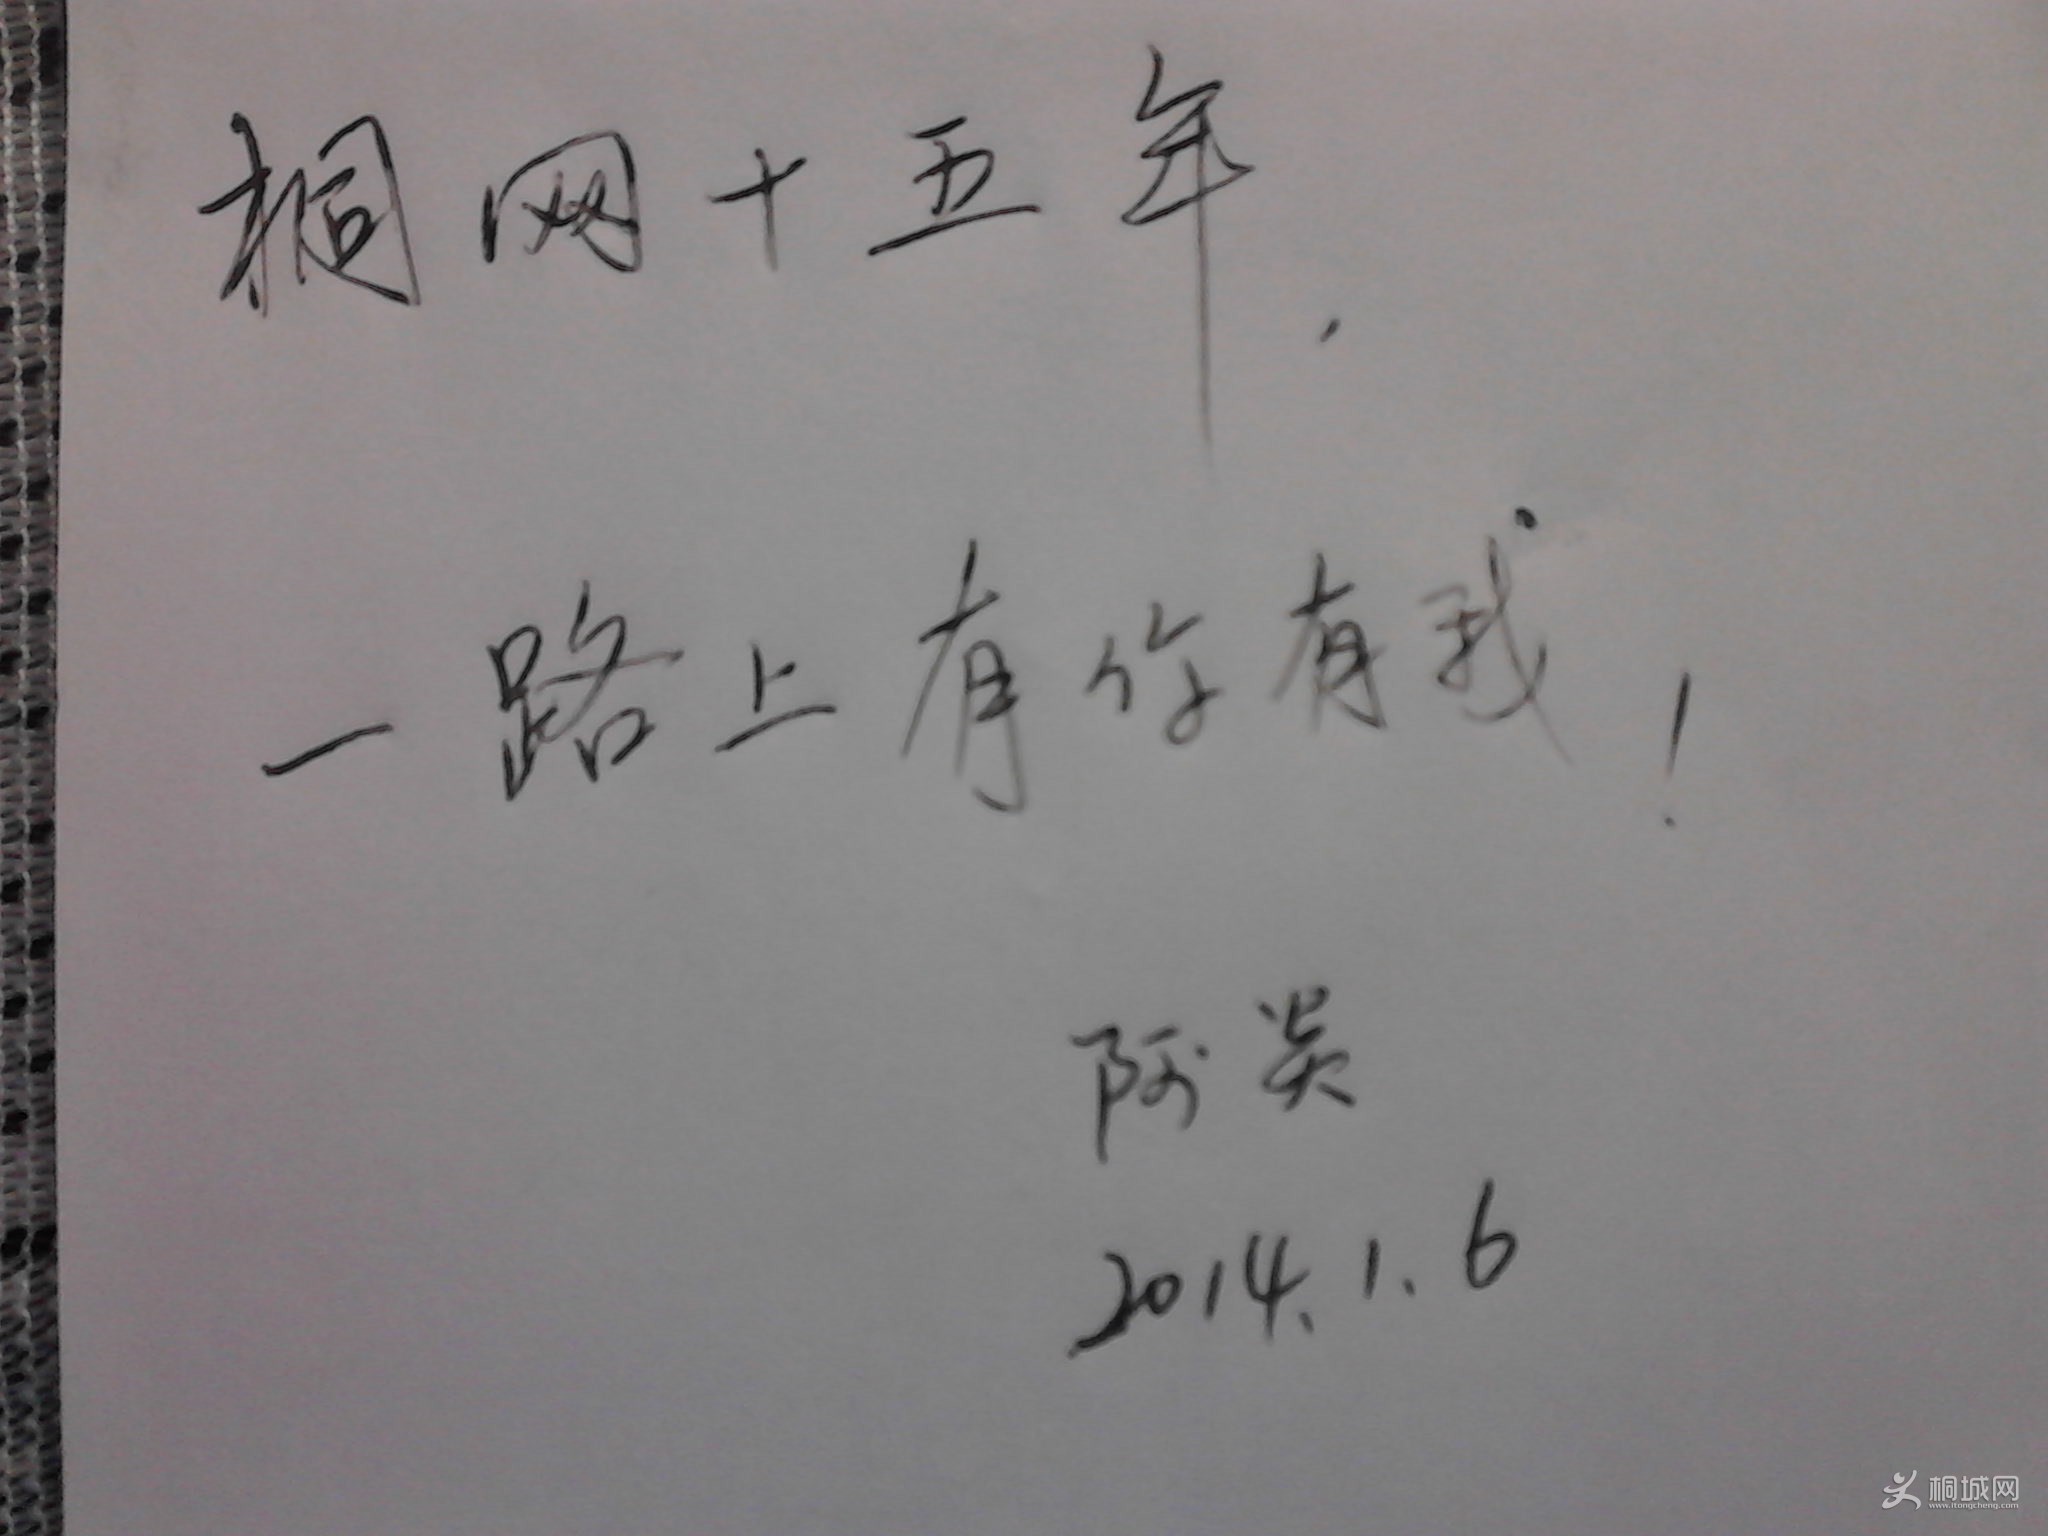 桐网十五年.
一路上有你有我!
阿炎
2014.1.6
桐城网
www.itongcheng.com